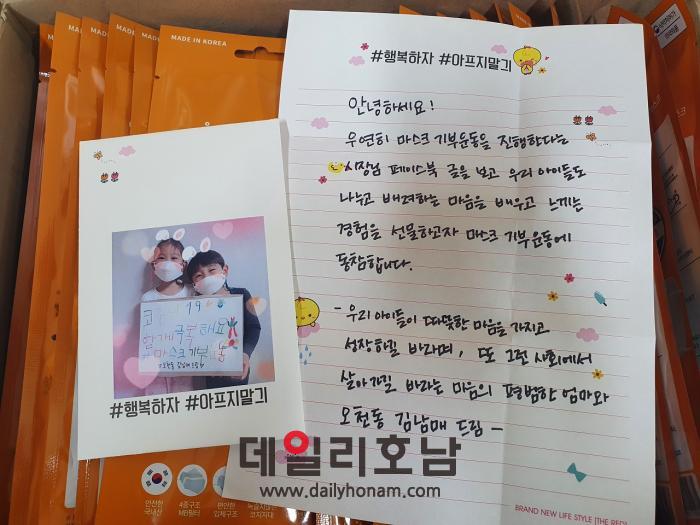 MADE IN KOREA
MADE IN KOREA
#행복하자 #아프지말긔
안녕하세요!
우연히 마스크 기부운동을 진행한다는
시장님 페이스북 글을 보고 우리 아이들도
나누고 배려하는 마음을 배우고 느끼는
경험을 선물하고자 마스크 기부운동에
동참합니다.
- 우리 아이들이 따뜻한 마음을 가지고
성장하길 바라며, 또 그런 사회에서
살아가길 바라는 마음의 평범한 엄마와
오천동 김남매 드림 -
코로나19
함께극복해요
#마스크기부운동
오천동 김남매 드림
#행복하자 #아프지말긔
데일리호남
www.dailyhonam.com
안전한
국내산
4중구조
MB필터
편안한
입체구조
코지지대
BRAND NEW LIFE STYLE [THE